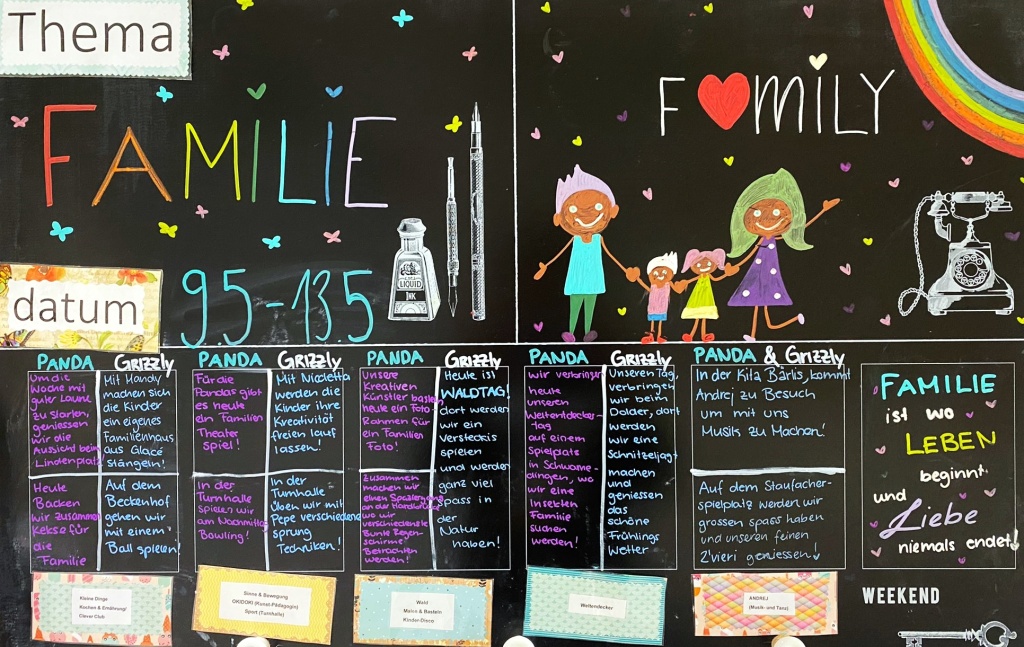 Thema
FAMILIE
datum
9.5-13.5
LIQUID
INK
FAMILY
PANDA
Um die
Woche mit
guter Laune
zu starten,
geniessen
wir die
Aussicht beim
Lindenplatz
Heute
Backen
wir zusammen
Kekse für
die
Familie
Grizzly
Mit Mandy
machen sich
die Kinder
ein eigenes
Familienhaus
aus Glacé
Stängeln!
Auf dem
Beckenhof
gehen wir
mit einem
Ball spielen!
PANDA
Für die
Pandas gibt
es heute
ein Familien
Theater
Spiel!
In der
Turnhalle
Spielen wir
am Nachmittag
Bowling!
Grizzly
Mit Nicoletta
werden die
Kinder ihre
Kreativität
freien lauf
lassen!
In der
Turnhalle
üben wir mit
Pepe verschiedene
sprung
Techniken!
PANDA
Unsere
Kreativen
Künstler basteln
heute ein Foto-
Rahmen für
ein Familien
Foto!
Zusammen
machen wir
einen Spaziergang
an der
wo wir
verschiedenste
Bunte Regen-
schirme
Betrachten
werden!
Grizzly
Heute ist
WALDTAG!
dort werden
wir ein
Versteckis
spielen
und werden
ganz viel
spass in
der
Natur
haben!
PANDA
Wir verbringen
heute
unseren
Weltentdecker-
tag
auf einem
Spielplatz
in Schwame-
dingen, wo
wir eine
Insekten
Familie
suchen
werden!
Grizzly
Unseren Tag,
verbringen
wir beim
Dolder, dort
werden
wir eine
Schnitzeljagt
machen
und
geniessen
das
schöne
Frühlings
Wetter
PANDA & Grizzly
In der Kita Bärlis, kommt
Andrej zu Besuch
um mit uns
Musik zu Machen!
Auf dem Staufacher-
spielplatz werden wir
grossen spass haben
und unseren feinen
Z'vieri geniessen
FAMILIE
ist wo
LEBEN
beginnt
und
Liebe
niemals endet!
Kleine Dinge
Kochen & Ernährung/
Clever Club
Sinne & Bewegung
OKIDOKI (Kunst-Pädagogin)
Sport (Turnhalle)
Wald
Malen & Basteln
Kinder-Disco
Weltendecker
ANDREJ
(Musik- und Tanz)
WEEKEND